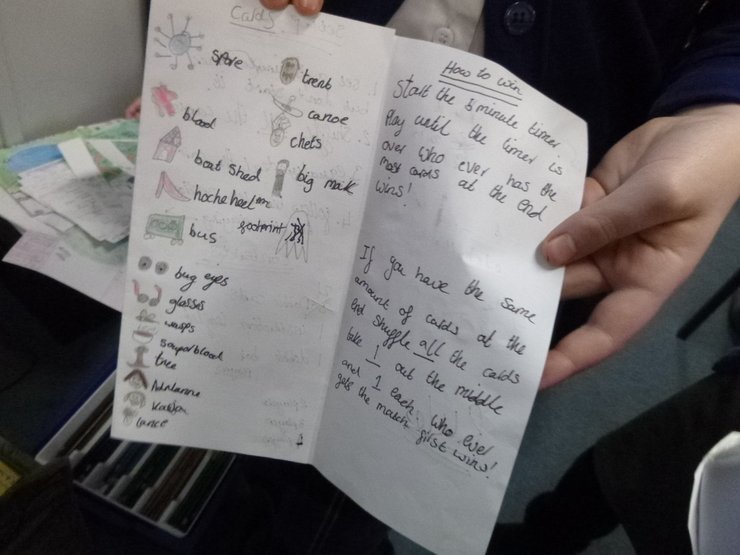 Cards
spore
blood
boat shed
bus
bug eyes
glasses
wasps
tree
trent
canoe
chets
big mak
footprint
How to win
Start the 5 minute timer
Play until the timer is
over who ever has the
most cards at the end
wins!
If you have the same
amount of cards at the
end shuffle all the cards
take 1 out the middle
and 1 each. Who ever
gets the match first wins!